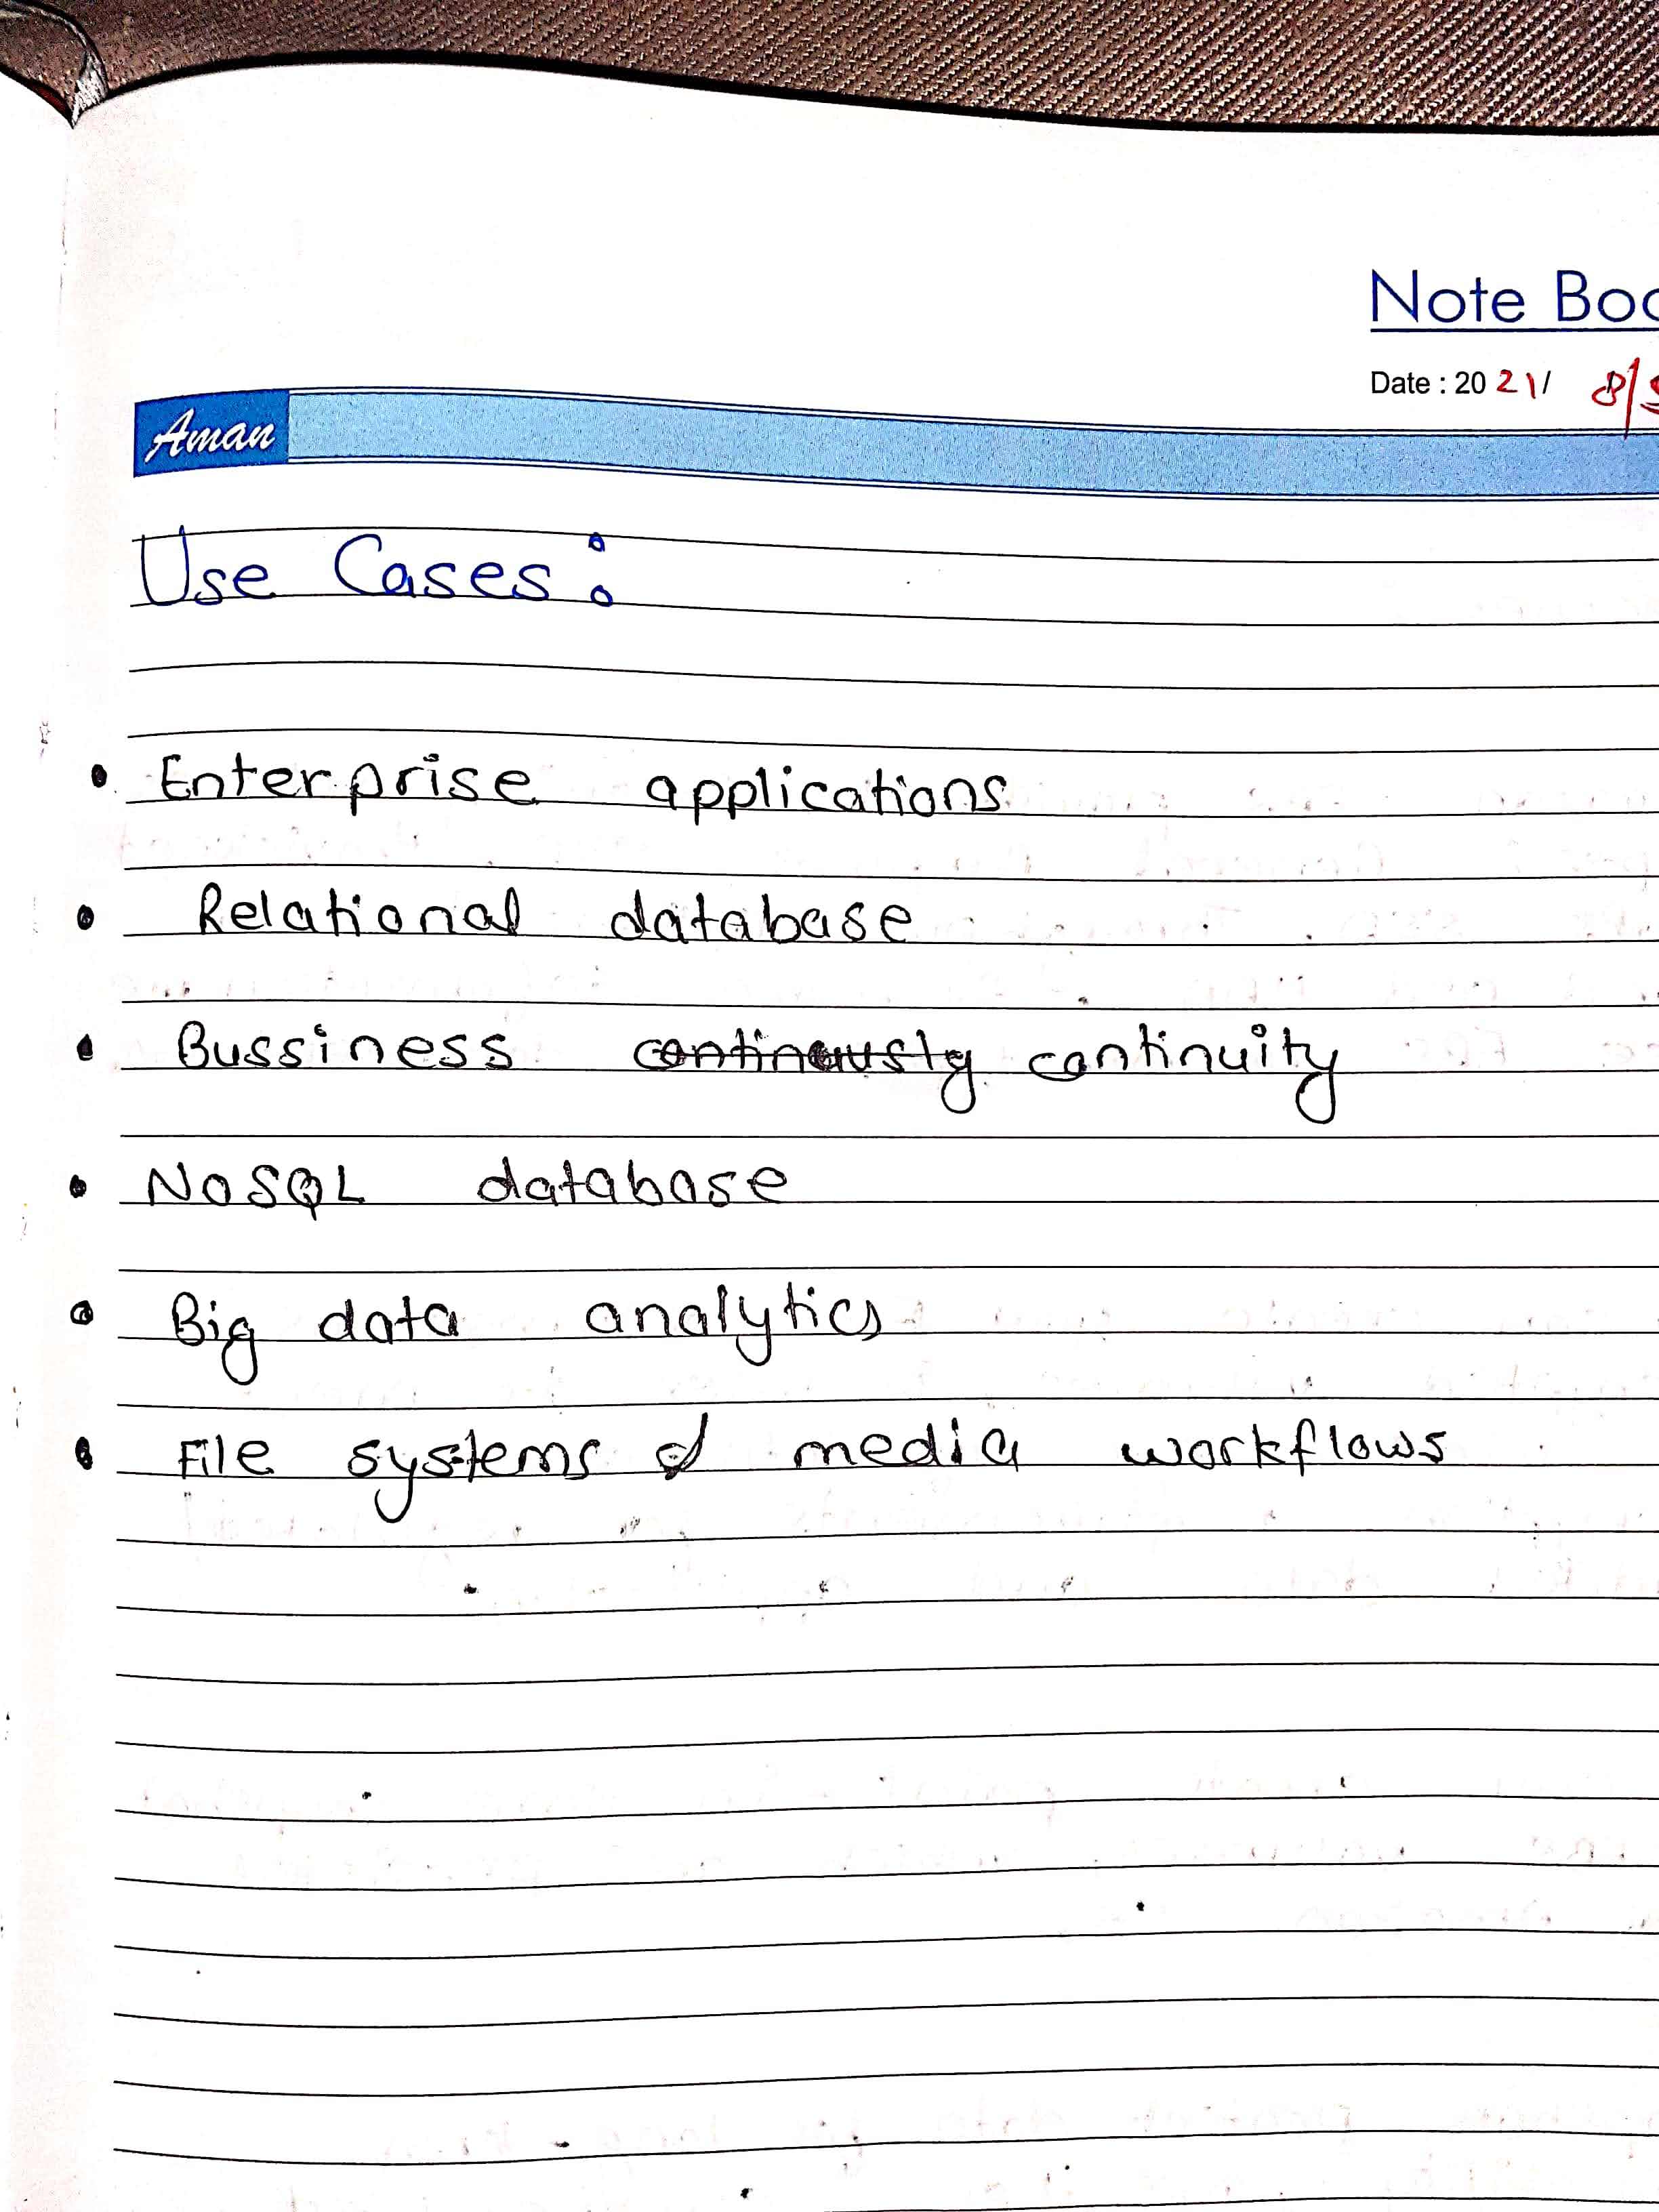 Note Boo
Date : 20 21/ 8/
Aman
Use Cases :
• Enterprise applications
• Relational database
• Bussiness continously continuity
• NoSQL database
• Big data analytics
• File systems & media workflows